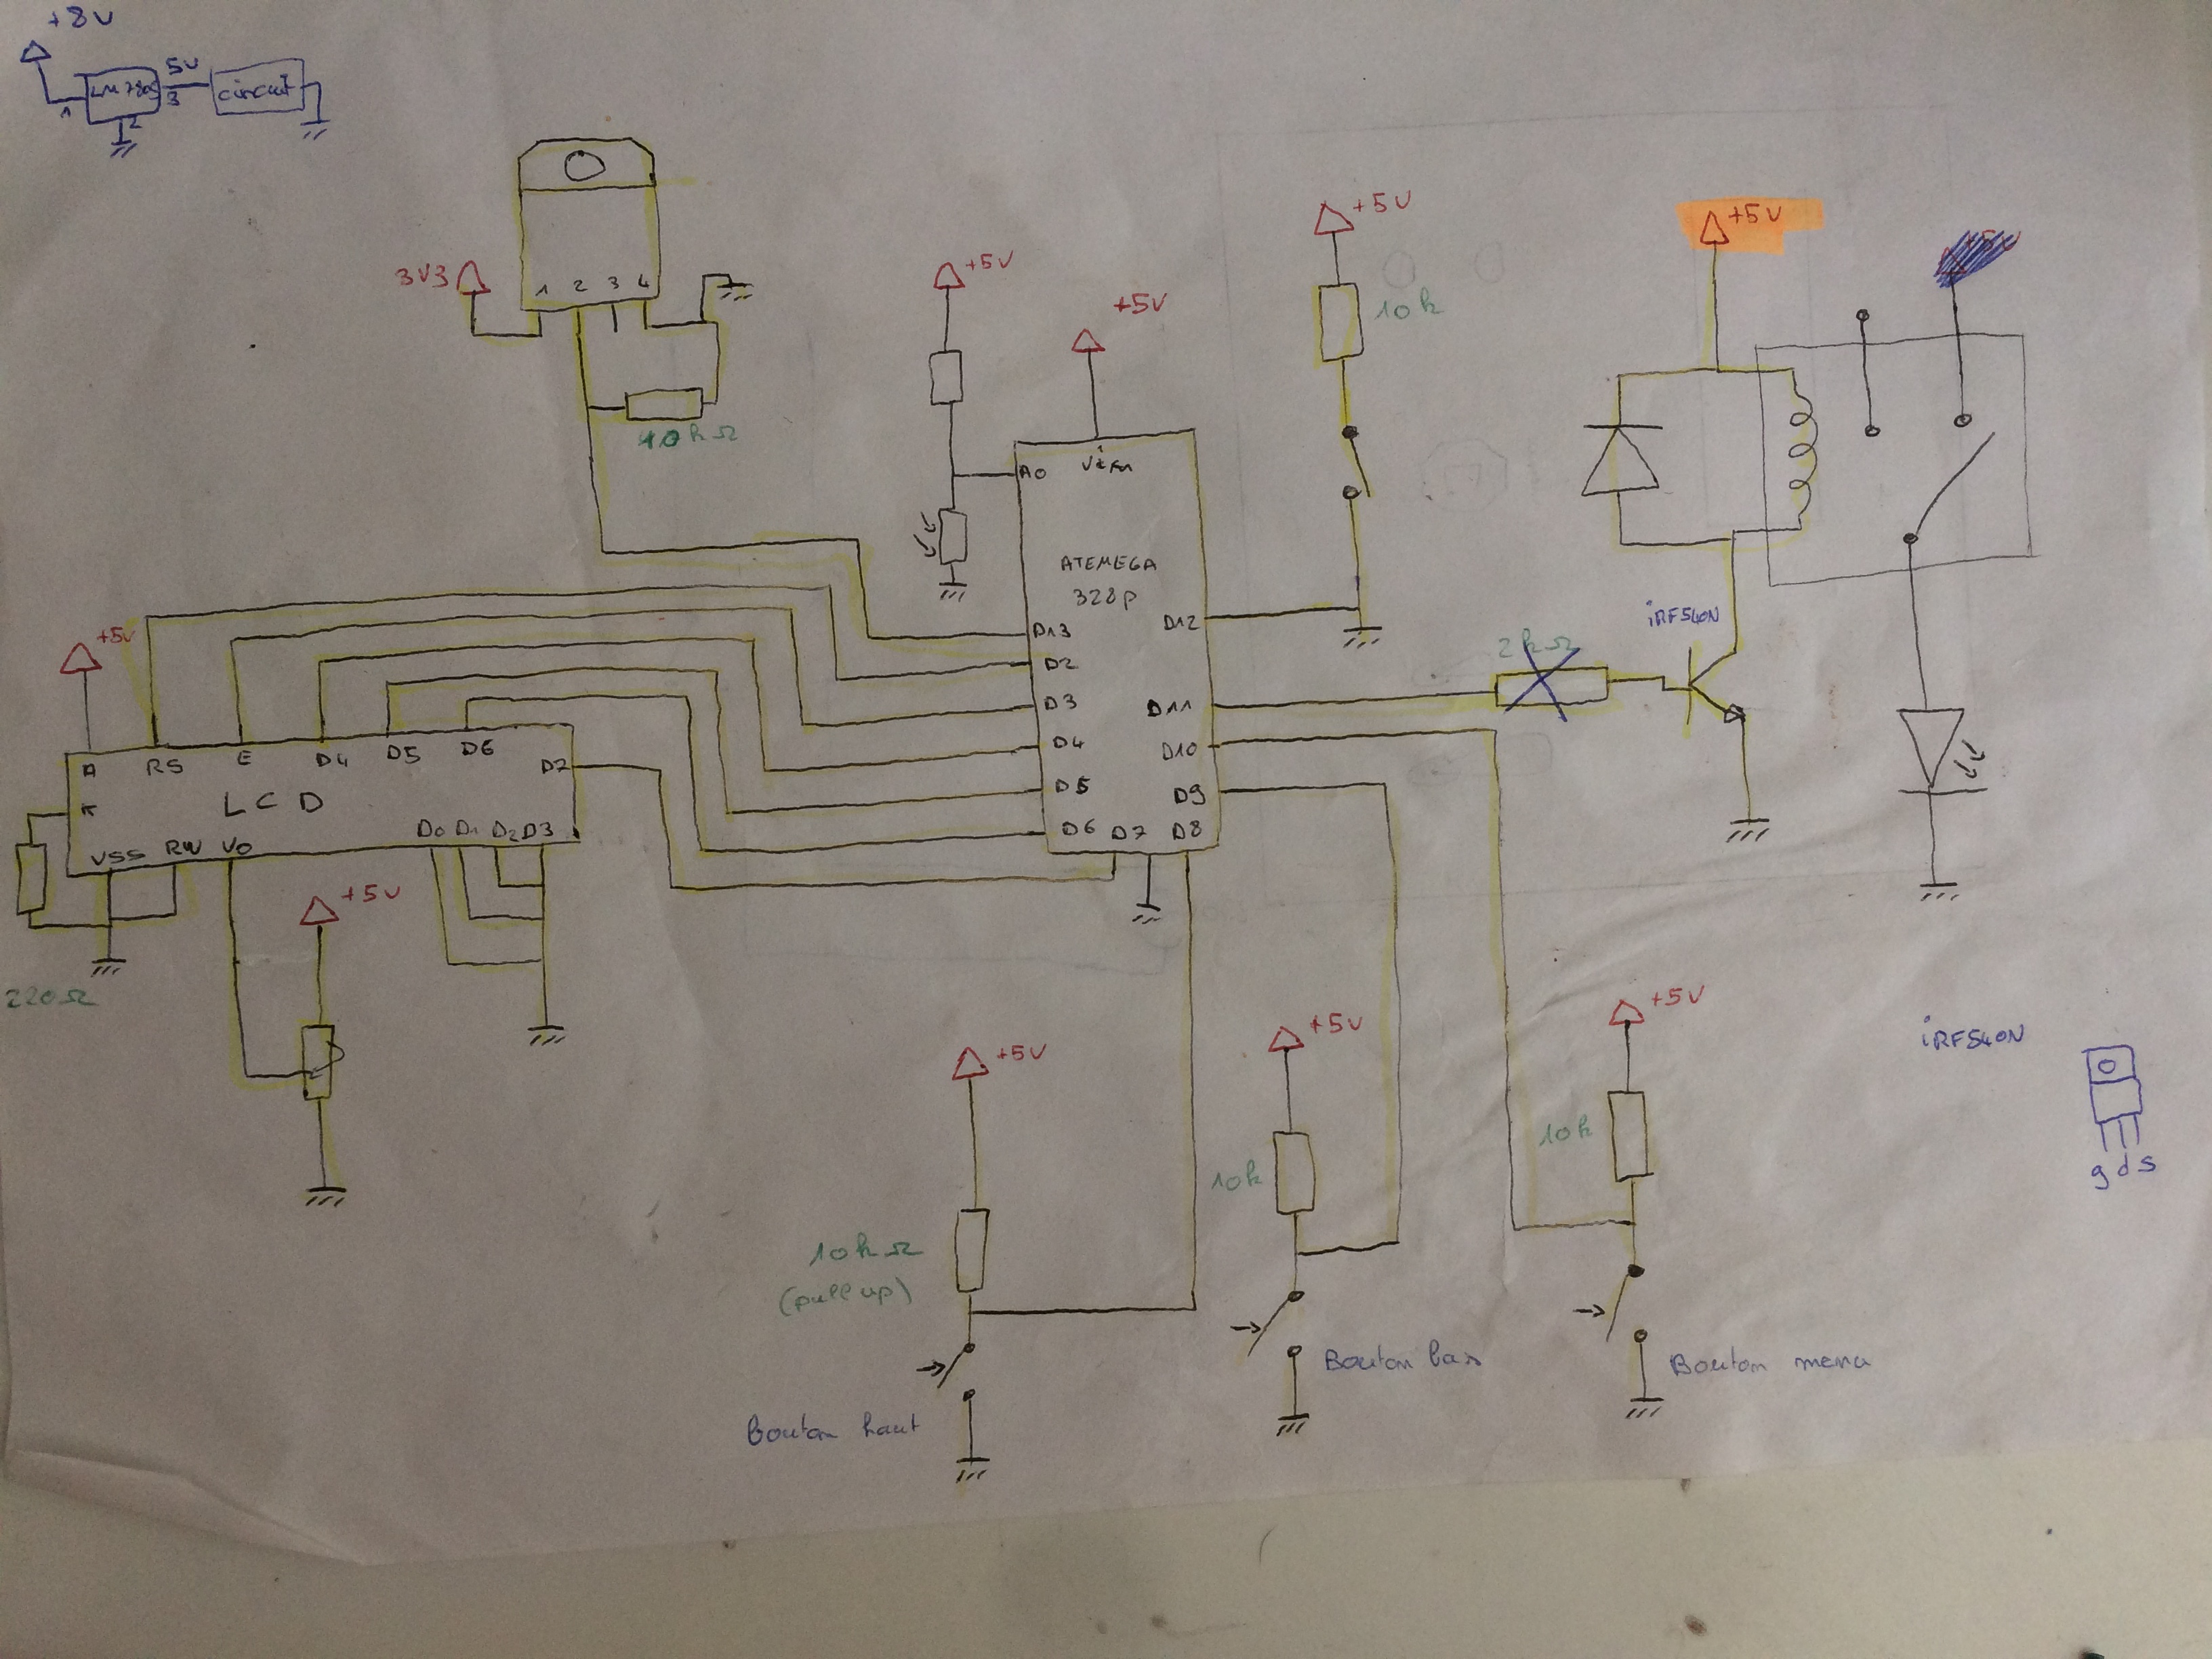 +8V
LM7805
1
2
5V
3
circuit
3V3
1 2 3 4
10kΩ
+5V
+5V
+5V
10k
+5V
A0
ATEMEGA
328p
D13
D2
D3
D4
D5
D6
D7
D8
D9
D10
D11
D12
2kΩ
iRF540N
+5V
A
RS
E
D4
D5
D6
D7
K
LCD
VSS
RW
VO
D0
D1
D2
D3
220Ω
+5V
+5V
10kΩ
(pull up)
Bouton haut
+5V
10k
Bouton bas
+5V
10k
Bouton menu
iRF540N
g d s